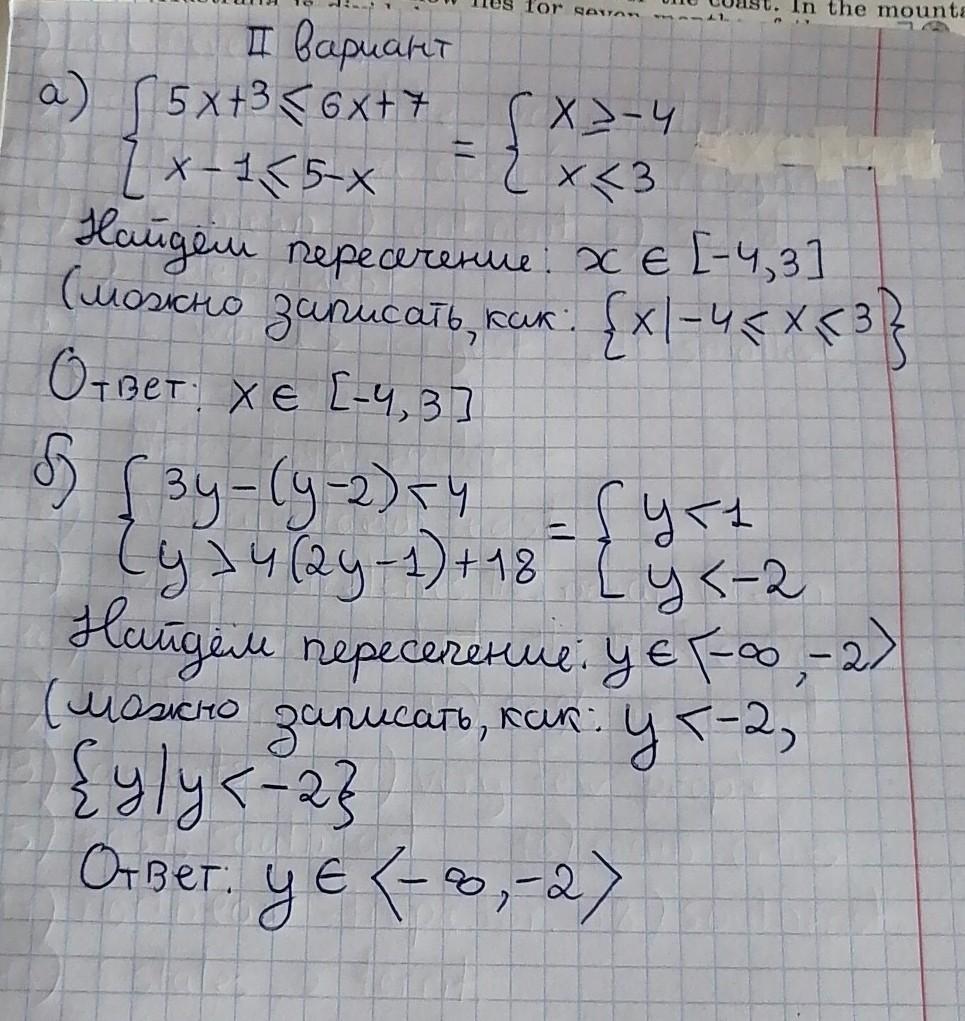 the coast. In the mounta
for seven
II вариант
а) { 5x+3≤6x+7 = { x≥-4
x-1≤5-x x≤3
Найдём пересечение: x ∈ [-4,3]
(можно записать, как: {x|-4≤x≤3}
Ответ: x ∈ [-4,3]
б) { 3y-(y-2)<4 = { y<1
y>4(2y-1)+18 y<-2
Найдём пересечение: y ∈ <-∞,-2>
(можно записать, как: y<-2,
{y|y<-2}
Ответ: y ∈ <-∞,-2>